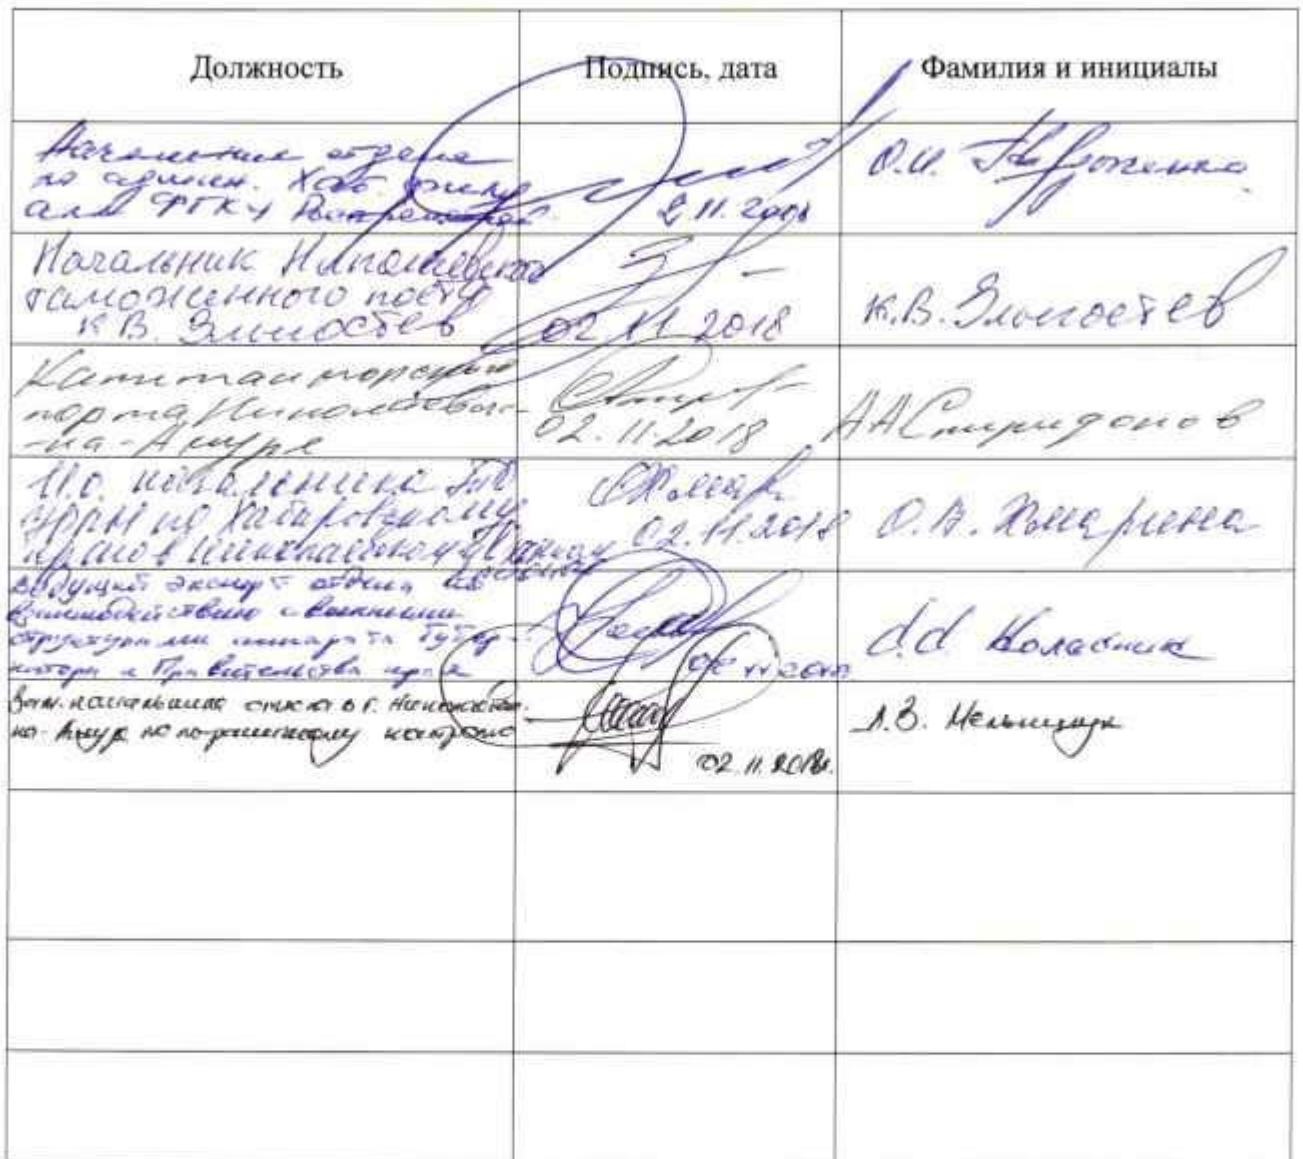 Должность
Подпись, дата
Фамилия и инициалы
Начальник отдела
по админ. Хаб. фили
ала ФГКУ
2.11.2018
О.И.
Начальник Николаевского
таможенного поста
К.В. Злыгостев
02.11.2018
К.В. Злыгостев
Капитан морского
порта Николаевск-
-на-Амуре
02.11.2018
А.А. Спиридонов
И.о. начальника
по Хабаровскому
краю в Николаевском районе
02.11.2018
О.В. Хмарина
ведущий эксперт отдела по
взаимодействию с военными
структурами аппарата Губер-
натора и Правительства края
02 11 2018
Колесник
Зам. начальника в г. Николаевске-
на-Амуре по пограничному контролю
02.11.2018г.
Л.В. Мельничук